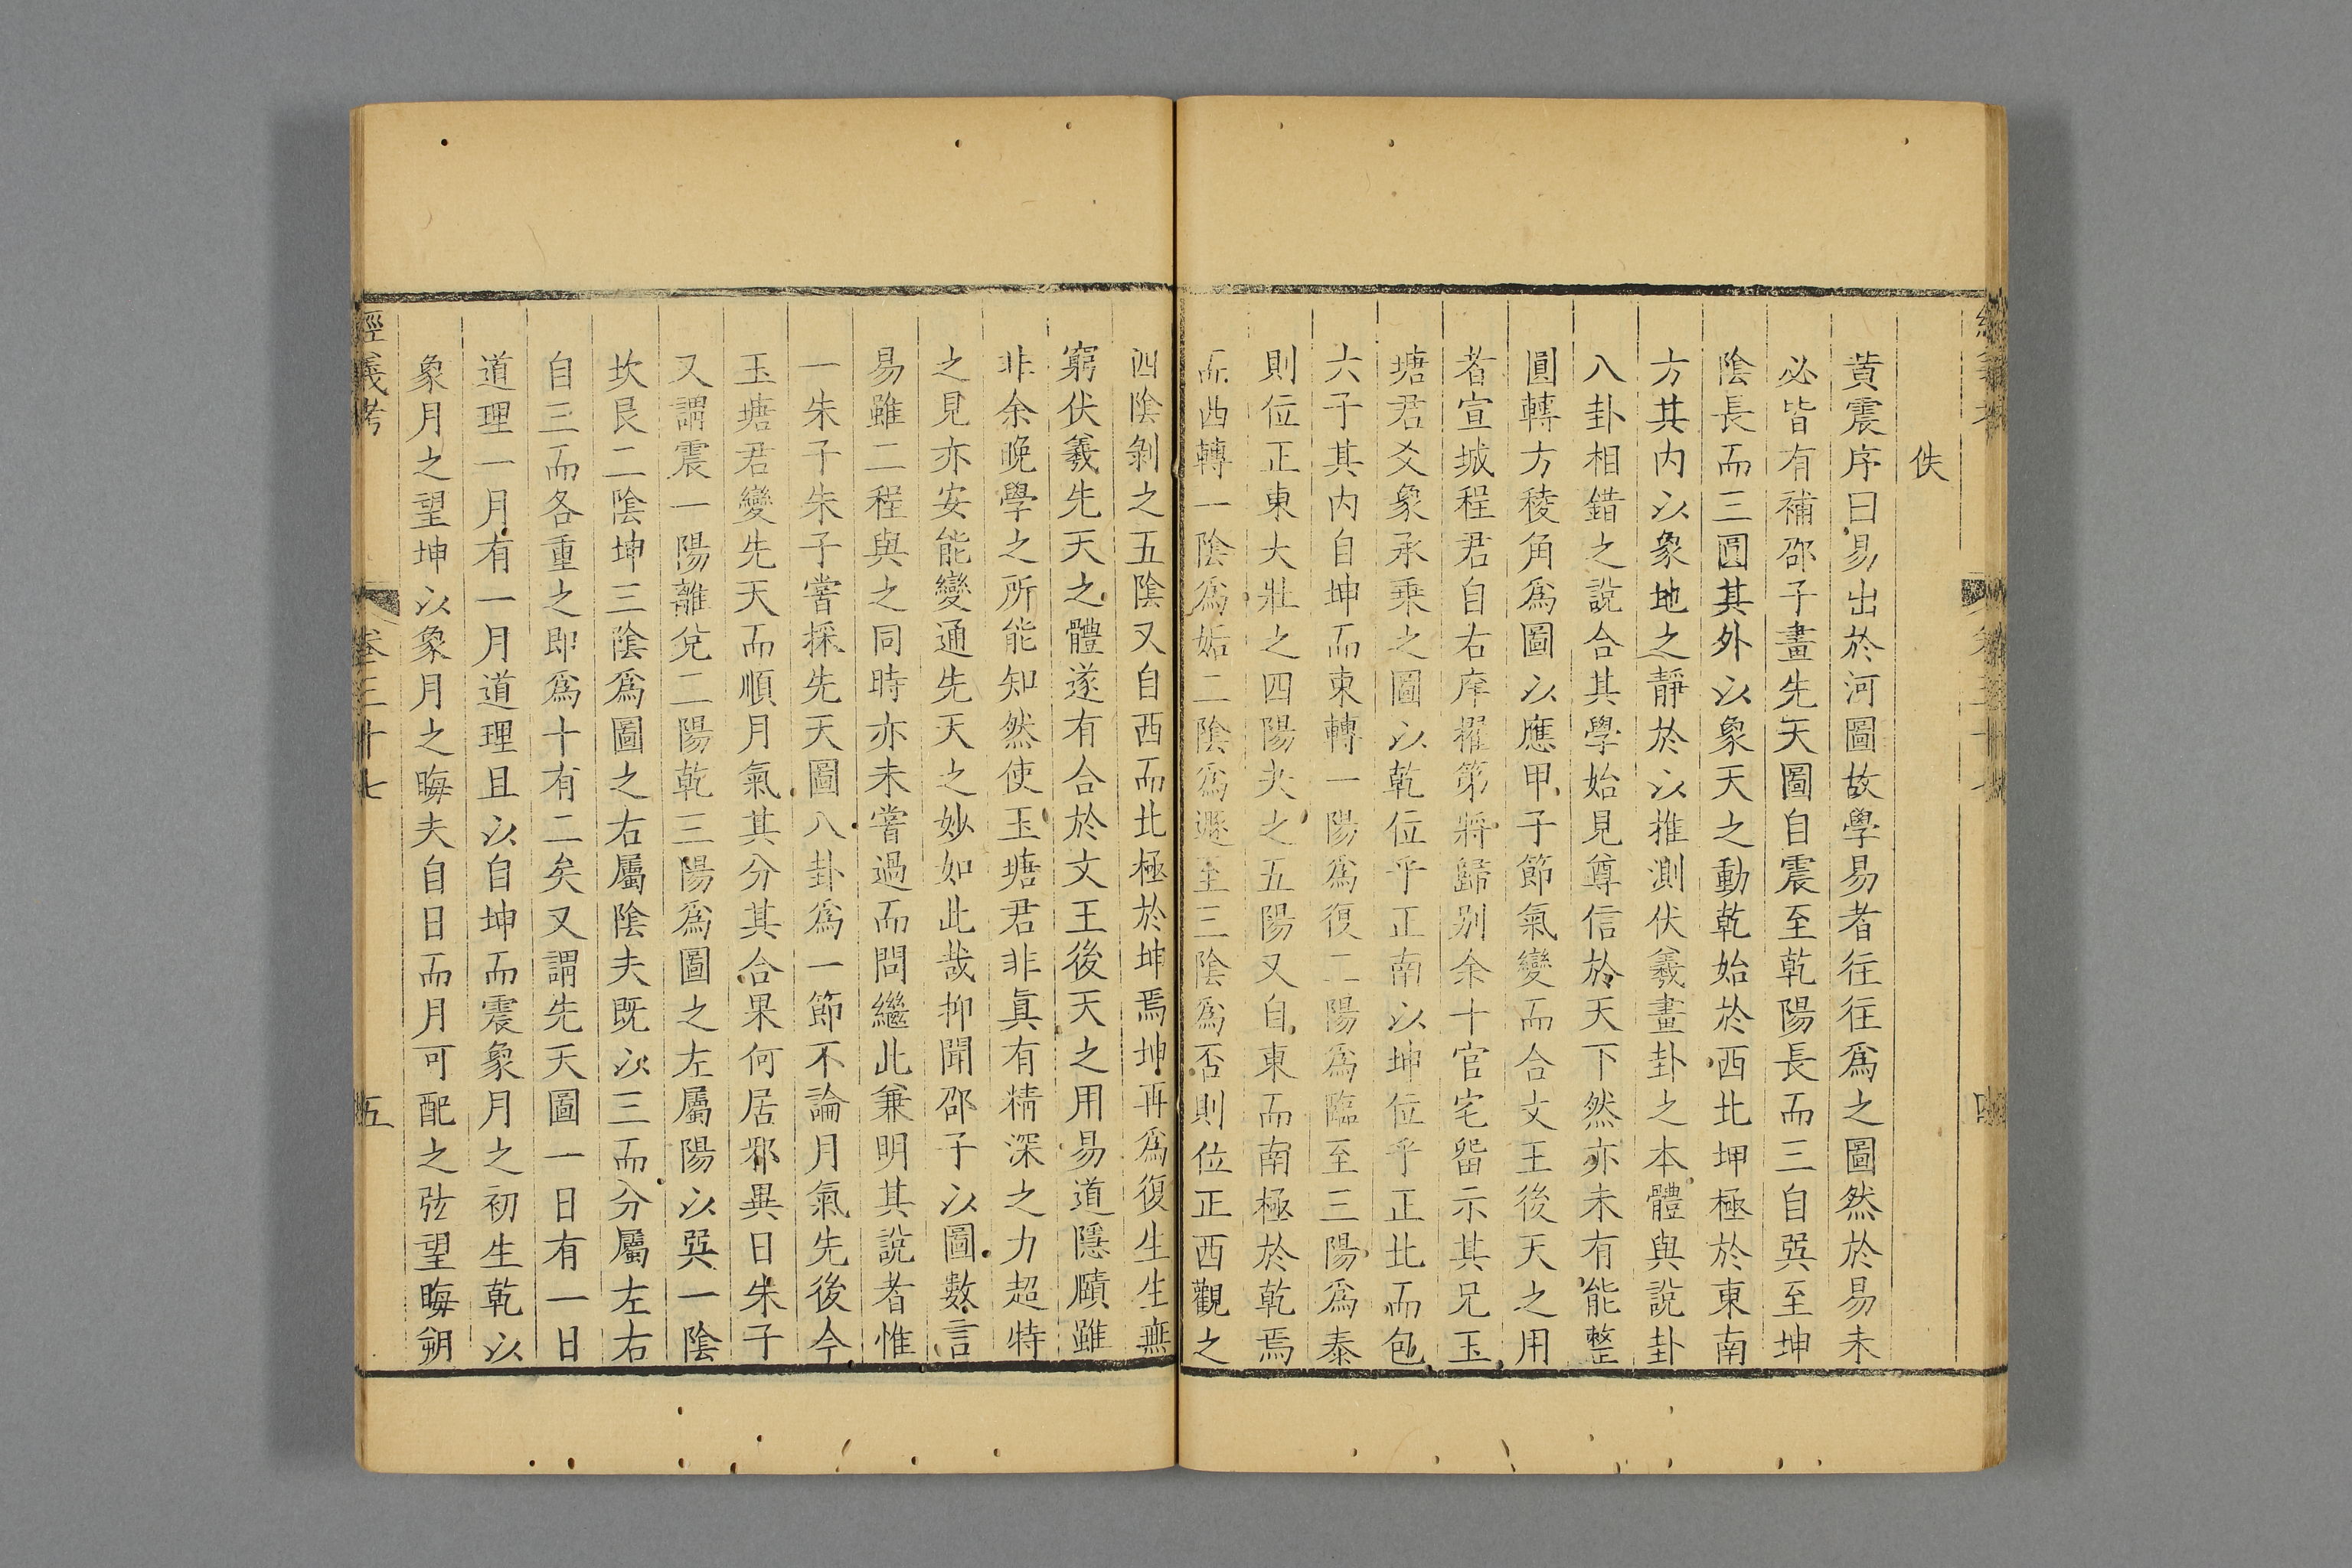 佚
黄震序曰易出於河圖故學易者往往爲之圖然於易未
必皆有補邵子畫先天圖自震至乾陽長而三自巽至坤
陰長而三圓其外以象天之動乾始於西北坤極於東南
方其内以象地之靜於以推測伏羲畫卦之本體與說卦
八卦相錯之說合其學始見尊信於天下然亦未有能整
圓轉方稜角爲圖以應甲子節氣變而合文王後天之用
者宣城程君自右庠擢第將歸别余十官宅畱示其兄玉
塘君爻象承乘之圖以乾位乎正南以坤位乎正北而包
六子其内自坤而東轉一陽爲復二陽爲臨至三陽爲泰
則位正東大壯之四陽夬之五陽又自東而南極於乾焉
而西轉一陰爲姤二陰爲遯至三陰爲否則位正西觀之
四陰剝之五陰又自西而北極於坤焉坤再爲復生生無
窮伏羲先天之體遂有合於文王後天之用易道隱賾雖
非余晚學之所能知然使玉塘君非眞有精深之力超特
之見亦安能變通先天之妙如此哉抑聞邵子以圖數言
易雖二程與之同時亦未嘗過而問繼此兼明其說者惟
一朱子朱子嘗採先天圖八卦爲一節不論月氣先後今
玉塘君變先天而順月氣其分其合果何居邪異日朱子
又謂震一陽離兌二陽乾三陽爲圖之左屬陽以巽一陰
坎艮二陰坤三陰爲圖之右屬陰夫既以三而分屬左右
自三而各重之即爲十有二矣又謂先天圖一日有一日
道理一月有一月道理且以自坤而震象月之初生乾以
象月之望坤以象月之晦夫自日而月可配之弦望晦朔
經義考
卷三十七
五